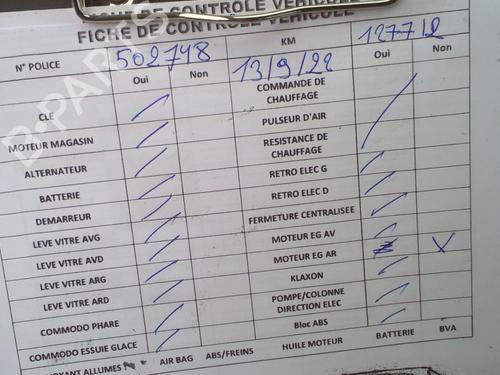 FICHE DE CONTRÔLE VÉHICULE
FICHE DE CONTRÔLE VÉHICULE
N° POLICE 502748 KM 127712
Oui Non 13/9/22 Oui Non
CLE COMMANDE DE CHAUFFAGE
MOTEUR MAGASIN PULSEUR D'AIR
ALTERNATEUR RESISTANCE DE CHAUFFAGE
BATTERIE RETRO ELEC G
DEMARREUR RETRO ELEC D
LEVE VITRE AVG FERMETURE CENTRALISEE
LEVE VITRE AVD MOTEUR EG AV
LEVE VITRE ARG MOTEUR EG AR X
LEVE VITRE ARD KLAXON
COMMODO PHARE POMPE/COLONNE DIRECTION ELEC
COMMODO ESSUIE GLACE Bloc ABS
ALLUMES AIR BAG ABS/FREINS HUILE MOTEUR BATTERIE BVA
B-PARTS